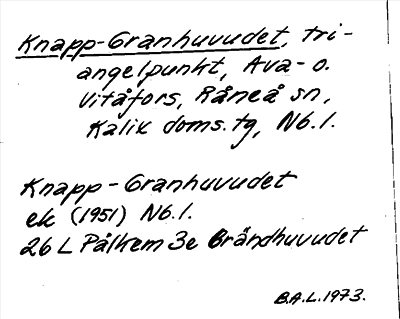 Knapp-Granhuvudet, tri-
angelpunkt, Ava- o.
Vitåfors, Råneå sn,
Kalix doms.tg, Nb.l.
Knapp-Granhuvudet
ek (1951) Nb.l.
26 L Pålkem 3e Brändhuvudet
B.A.L.1973.